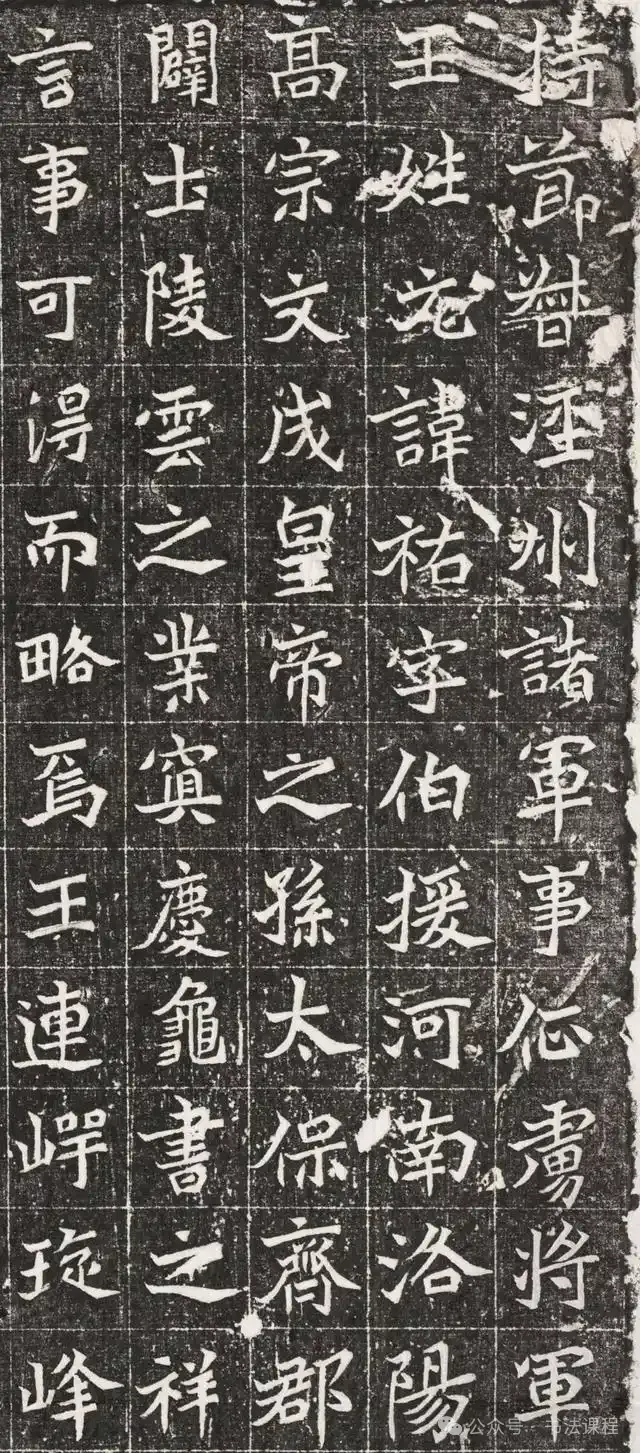 持節督涇州諸軍事征虜將軍
王姓元諱祐字伯援河南洛陽
髙宗文成皇帝之孫太保齊郡
闢士陵雲之業寘慶龜書之祥
言事可淂而略焉王連崿琁峰
公众号 · 书法课程